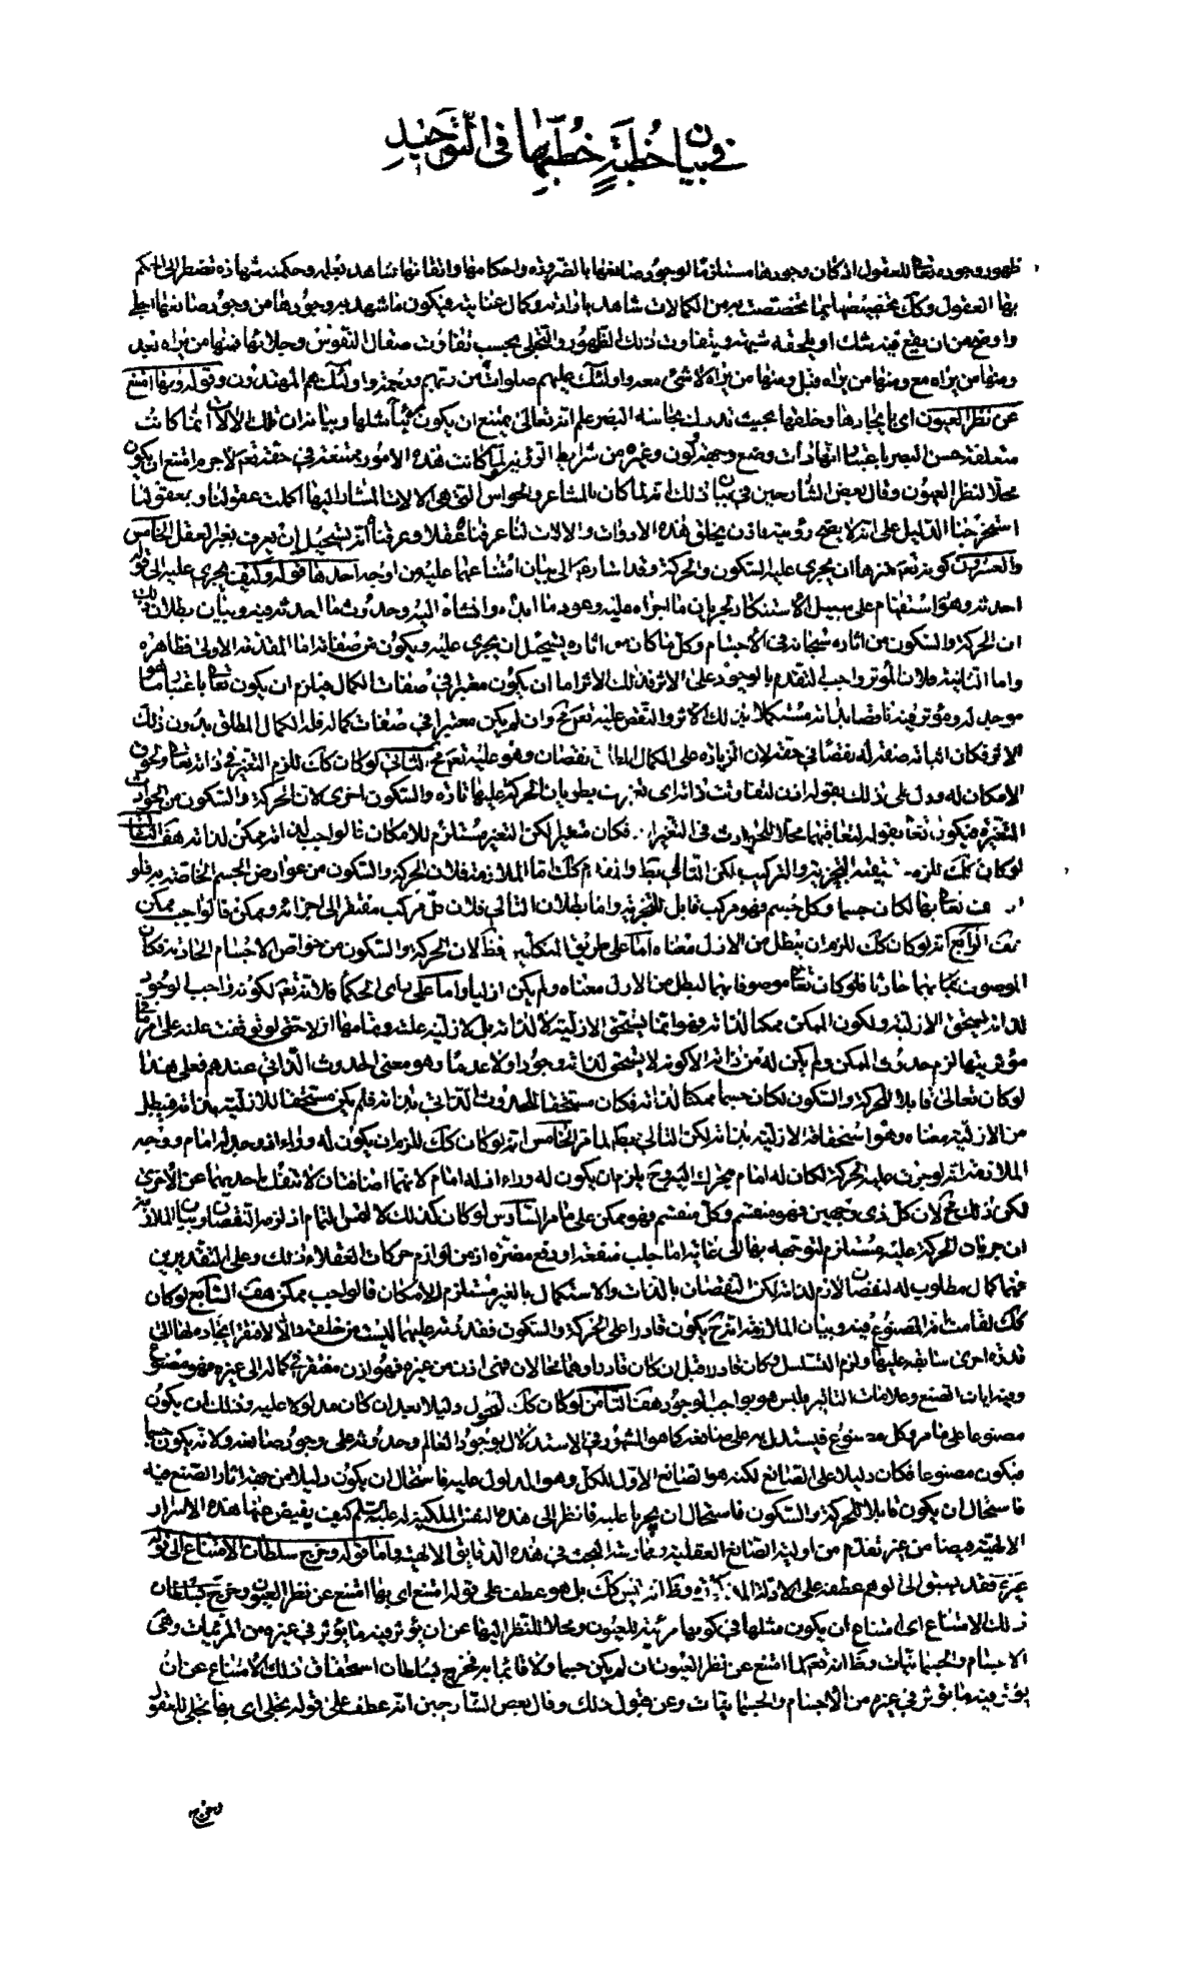 في بيان خطبة خطبها في التوحيد
ظهور وجوده تعا للعقول اذ كان وجودها مستلزما لوجود صانعها بالضرورة واحكامها واتقانها شاهد بعلمه وحكمته شهادة تضطر الى الحكم
بها العقول وكل تخصيصها بما تخصصت به من الكمالات شاهد بارادته وكمال عنايته فيكون ما شهد به وجودها من وجود صانعها اجلى
واوضح من ان يقع فيه شك او يلحقه شبهة ويتفاوت ذلك الظهور والتجلى بحسب تفاوت صقال النفوس وجلائها فمنها من يراه بعد
ومنها من يراه مع ومنها من يراه قبل ومنها من يراه لا شئ معه واولئك عليهم صلوات من ربهم ورحمة واولئك هم المهتدون وقوله وبها امتنع
عن نظر العيون اى بايجادها وخلقها بحيث تدرك بحاسة البصر علم انه تعالى يمتنع ان يكون مثلها وبيانه ان تلك الالات انما كانت
متعلقة حس البصر باعتبار انها ذات وضع وجهة ولون وغيره من شرايط الرؤية ولما كانت هذه الامور ممتنعة في حقه تعم لا جرم امتنع ان يكون
محلا لنظر العيون وقال بعض الشارحين في بيان ذلك انه لما كان بالمشاعر والحواس التى هى الالات المشار اليها اكملت عقولنا وبعقولنا
استخرجنا الدليل على انه لا يصح رؤيته فاذن بخلق هذه الادوات والالات لنا عرفناه عقلا وعرفنا انه يستحيل ان يعرف بغير العقل الخامس
والعشرون كونه تعم منزها ان يجرى عليه السكون والحركة وقد اشارع الى بيان امتناعهما عليه من اوجه احدها قوله وكيف يجرى عليه الى قوله
احدثه وهو استفهام على سبيل الاستنكار لجريان ما اجراه عليه وعود ما ابداه وانشاه اليه وحدوث ما احدثه فيه وبيان بطلان ذلك
ان الحركة والسكون من اثاره سبحانه في الاجسام وكل ما كان من اثاره يستحيل ان يجرى عليه ويكون من صفاته اما المقدمة الاولى فظاهره
واما الثانية فلان المؤثر واجب التقدم بالوجود على الاثر فذلك الاثر اما ان يكون معتبرا في صفات الكمال فيلزم ان يكون تعا باعتبار ما هو
موجد له ومؤثر فيه ناقصا بذاته مستكملا بذلك الاثر والنقص عليه تعم مح وان لم يكن معتبرا في صفات كماله فله الكمال المطلق بدون ذلك
الاثر فكان اثباته صفة له نقصا في حقه لان الزيادة على الكمال المطلق نقصان وهو عليه تعم مح الثاني لو كان كك للزم التغير في ذاته تعا ولحوق
الامكان له ودل على ذلك بقوله اذن لتفاوتت ذاته اى تغيرت بطريان الحركة عليها تارة والسكون اخرى لان الحركة والسكون من الحوادث
المتغيرة فيكون تعا بقوله لتعاقبهما محلا للحوادث في التغير
لو كان كك للزم والتركيب لكن التالي بط والمقدم كك اما الملازمة فلان الحركة والسكون من عوارض الجسم الخاصة به فلو
تعا بها لكان جسما وكل جسم فهو مركب قابل للتجزية واما بطلان التالي فلان كل مركب مفتقر الى اجزائه وممكن فالواجب ممكن
هف الرابع انه لو كان كك للزم ان يبطل من الازل معناه اما على طريق المتكلمين فظ لان الحركة والسكون من خواص الاجسام الحادثة فكان
الموصوف بهما حادثا فلو كان تعا موصوفا بهما لبطل من الازل معناه ولم يكن ازليا واما على راى الحكماء فلانه تعم لكونه واجب الوجود
لذاته يستحق الازلية ولكون الممكن ممكنا لذاته فهو انما يستحق الازلية لا لذاته بل لازلية علته وتمامها ازلا حتى لو توقفت علته على امر ما في
مؤثريتها لزم حدوث الممكن ولم يكن له من ذاته الا كونه لا يستحق لذاته وجودا ولا عدما وهو معنى الحدوث الذاتي عندهم فعلى هذا
لو كان تعالى قابلا للحركة والسكون لكان جسما ممكنا لذاته فكان مستحقا للحدوث الذاتي بذاته فلم يكن مستحقا للازلية بذاته فيبطل
من الازلية معناه وهو استحقاقه الازلية بذاته لكن التالي بط لما مر الخامس انه لو كان كك للزم ان يكون له وراء اذ وجد له امام ووجه
الملازمة انه لو جرت عليه الحركة لكان له امام يتحرك اليه وح يلزم ان يكون له وراء اذ له امام لانهما اضافتان لا تنفك احديهما عن الاخرى
لكن ذلك مح لان كل ذى وجهين فهو منقسم وكل منقسم فهو ممكن على ما مر السادس لو كان كذلك لالتمس التمام اذ لزمه النقصان وبيان الملازمة
ان جريان الحركة عليه مستلزم لتوجهه بها الى غاية اما جلب منفعة او دفع مضرة اذ من لوازم حركات العقلاء ذلك وعلى التقديرين
فهما كمال مطلوب له لنقصان لازم لذاته لكن النقصان بالذات والاستكمال بالغير مستلزم للامكان فالواجب ممكن هف السابع لو كان
كك لقامت اية المصنوع فيه وبيان الملازمة انه ح يكون قادرا على الحركة والسكون فقدرته عليهما ليست من خلقه والا لافتقر ايجاده لها الى
قدرة اخرى سابقة عليها ولزم التسلسل وكان قادرا قبل ان كان قادرا وهما محالان فهى اذن من غيره فهو اذن مفتقر في كماله الى غيره فهو مصنوع
وفيه ايات الصنع وعلامات التاثير فليس هو بواجب الوجود هف الثامن لو كان كك لتحول دليلا بعد ان كان مدلولا عليه وذلك ان يكون
مصنوعا على ما مر وكل مصنوع فيستدل به على صانعه كما هو المشهور في الاستدلال بوجود العالم وحدوثه على وجود صانعه ولانه يكون جسما
فيكون مصنوعا فكان دليلا على الصانع لكنه هو الصانع الاول للكل وهو المدلول عليه فاستحال ان يكون دليلا من جهة اثار الصنع فيه
فاستحال ان يكون قابلا للحركة والسكون فاستحال ان يجريا عليه فانظر الى هذه النفس الملكية له عليه السلم كيف يفيض عنها هذه الاسرار
الالهية فيضا من غير تقدم من اولية الصانع العقلية وممارسة البحث في هذه الدقايق الالهية واما قوله وخرج بسلطان الامتناع الى قوله
غيره فقد يسبق الى الوهم عطفه على الادلة المذكورة وظ انه ليس كك بل هو عطف على قوله امتنع اى بها امتنع عن نظر العيون وخرج بسلطان
ذلك الامتناع اى امتناع ان يكون مثلها في كونها مرئية للعيون ومحلا للنظر اليها عن ان يؤثر فيه ما يؤثر في غيره من المرئيات وهى
الاجسام والجسمانيات وظ انه تعم لما امتنع عن نظر العيون ان لم يكن جسما ولا قائما به فخرج بسلطان استحقاق ذلك الامتناع عن ان
يؤثر فيه ما يؤثر في غيره من الاجسام والجسمانيات وعن قبول ذلك وقال بعض الشارحين انه عطف على قوله تجلى اى بها تجلى للعقول